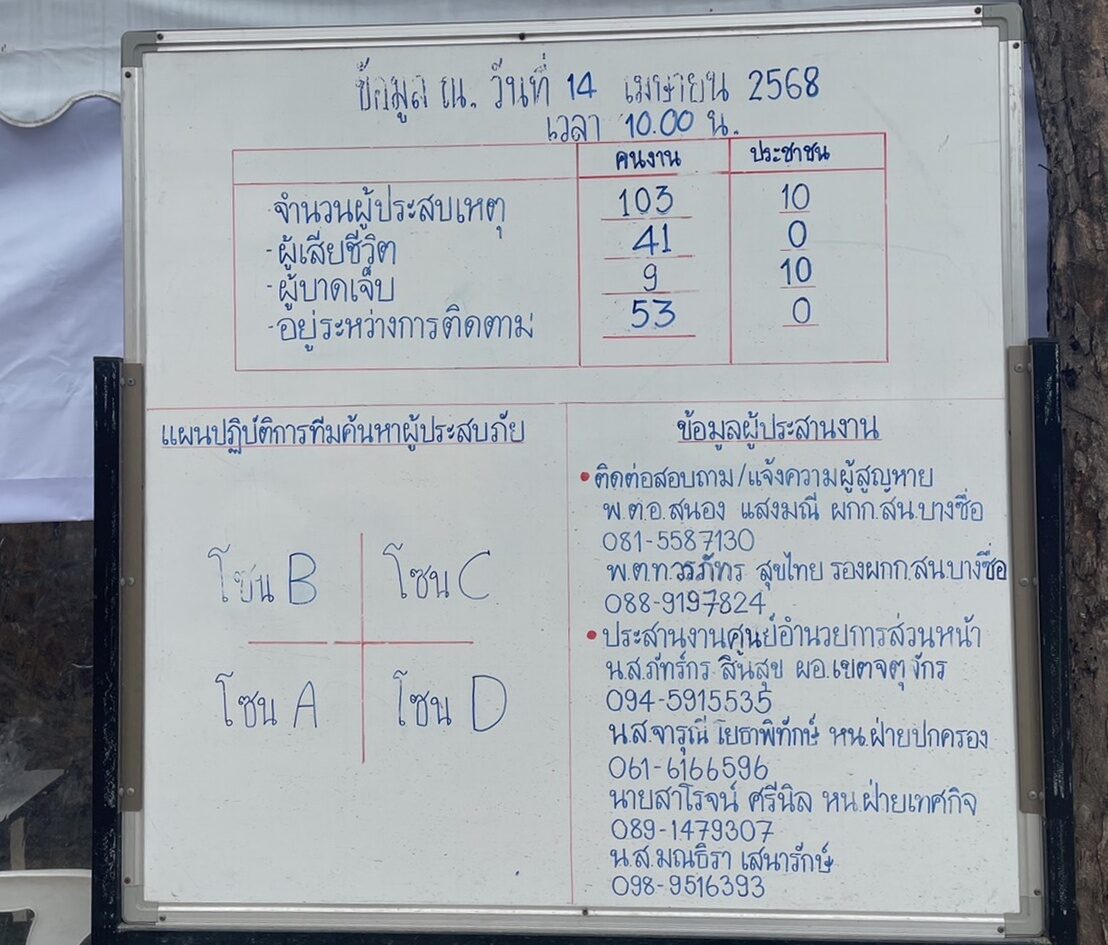 ข้อมูล ณ. วันที่ 14 เมษายน 2568
เวลา 10.00 น.
คนงาน ประชาชน
-จำนวนผู้ประสบเหตุ 103 10
-ผู้เสียชีวิต 41 0
-ผู้บาดเจ็บ 9 10
-อยู่ระหว่างการติดตาม 53 0
แผนปฏิบัติการทีมค้นหาผู้ประสบภัย
โซน B โซน C
โซน A โซน D
ข้อมูลผู้ประสานงาน
• ติดต่อสอบถาม/แจ้งความผู้สูญหาย
พ.ต.อ.สนอง แสงมณี ผกก.สน.บางซื่อ
081-5587130
พ.ต.ท.วรภัทร สุขไทย รองผกก.สน.บางซื่อ
088-9197824
• ประสานงานศูนย์อำนวยการส่วนหน้า
น.ส.ภัทร์กร สินสุข ผอ.เขตจตุจักร
094-5915535
น.ส.จารุณี โยธาพิทักษ์ หน.ฝ่ายปกครอง
061-6166596
นายสาโรจน์ ศรีนิล หน.ฝ่ายเทศกิจ
089-1479307
น.ส.มณธิรา เสนารักษ์
098-9516393